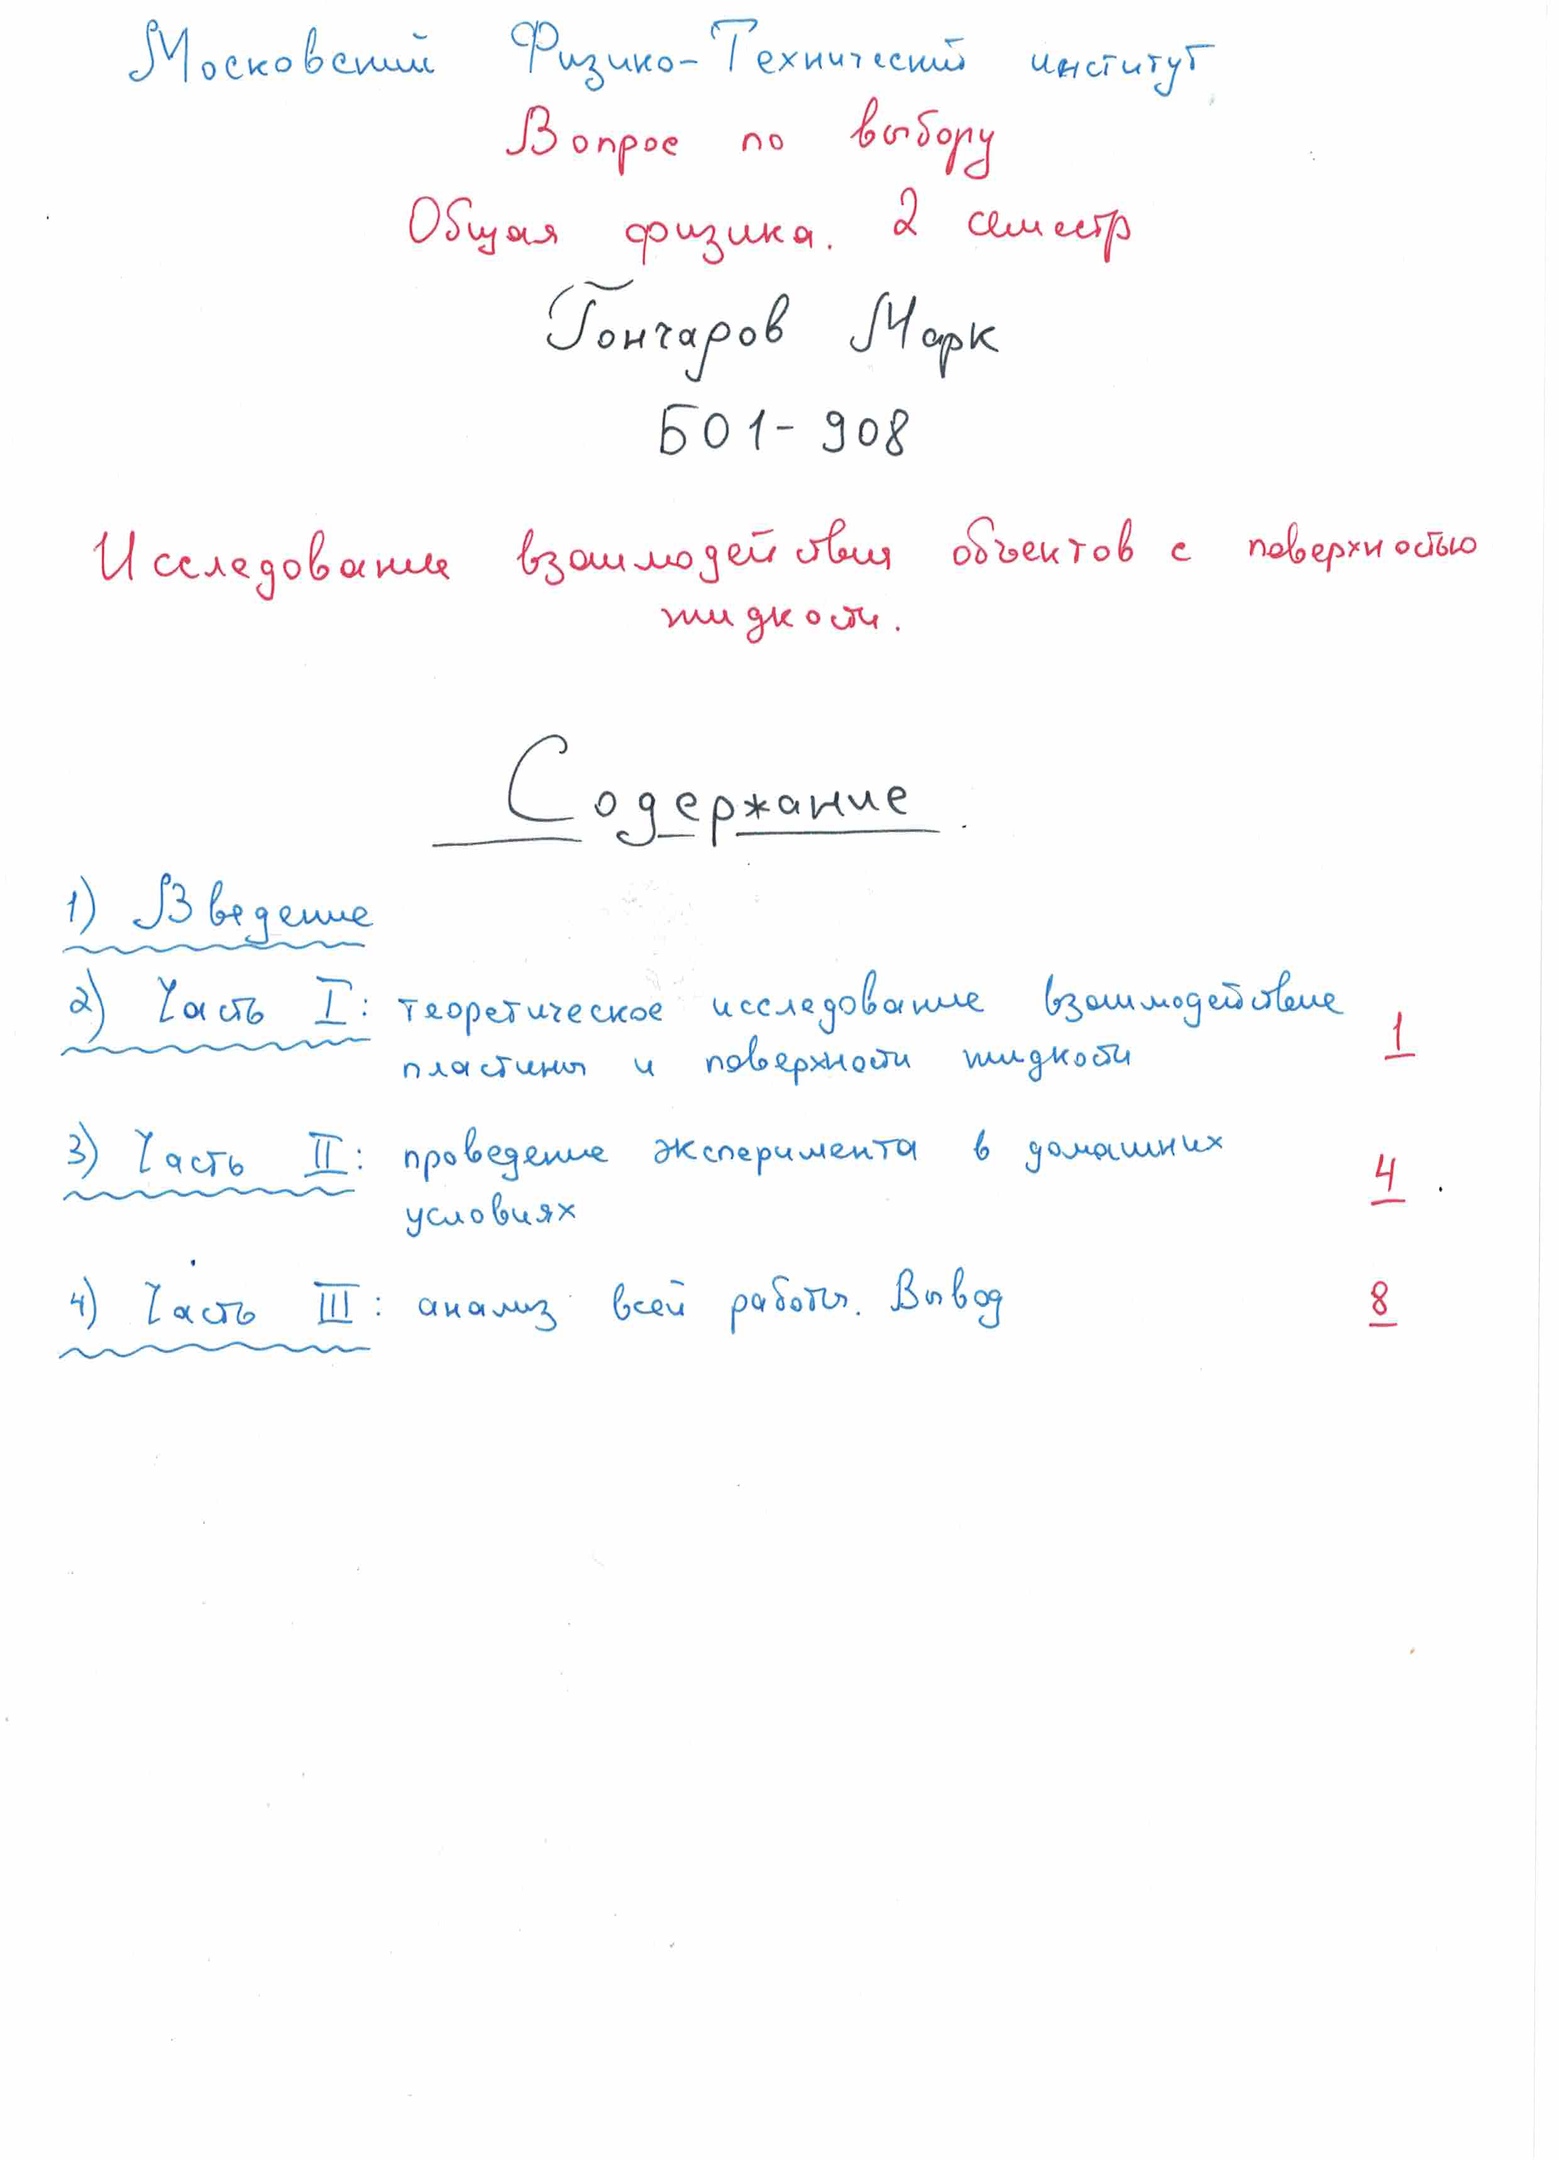 Московский Физико-Технический институт
Вопрос по выбору
Общая физика. 2 семестр
Гончаров Марк
Б01-908
Исследование взаимодействия объектов с поверхностью
жидкости.
Содержание
1) Введение
2) Часть I: теоретическое исследование взаимодействие
пластины и поверхности жидкости 1
3) Часть II: проведение эксперимента в домашних
условиях 4
4) Часть III: анализ всей работы. Вывод 8